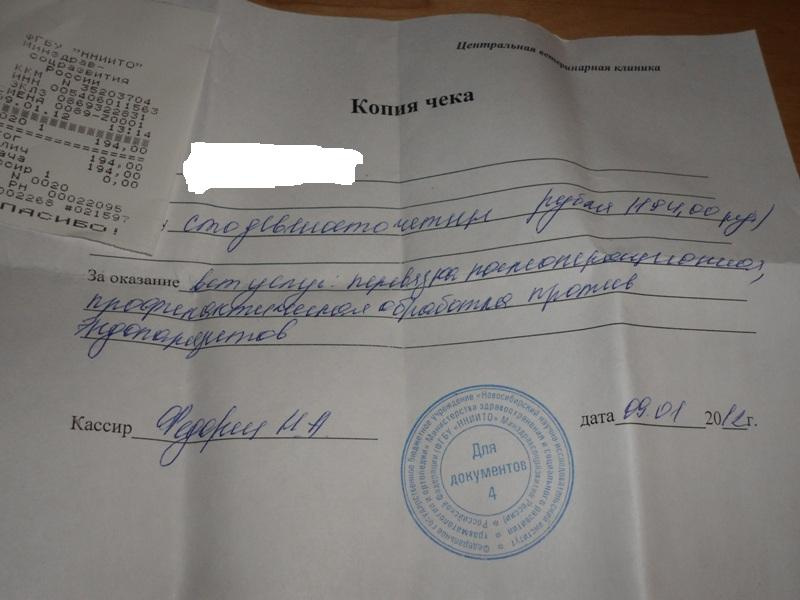 ФГБУ "ННИИТО"
МИНЗДРАВ-
СОЦРАЗВИТИЯ
РОССИИ
ККМ N 35203704
ИНН 005406011563
ЭКЛЗ 0869322831
СМЕНА 0089-Z0001
09.01.12 13:14
194,00
194,00
194,00
0,00
N 0020
00022095
002268 #021597
СПАСИБО!
Центральная ветеринарная клиника
Копия чека
сто девяносто четыре рубля (194,00 руб)
За оказание вет услуг: перевязка послеоперационная,
профилактическая обработка против
эндопаразитов
Кассир
дата 09.01 2012г.
Федеральное государственное бюджетное учреждение «Новосибирский научно-исследовательский институт
травматологии и ортопедии» Министерства здравоохранения и социального развития
Российской Федерации (ФГБУ «ННИИТО» Минздравсоцразвития России)
Для
документов
4